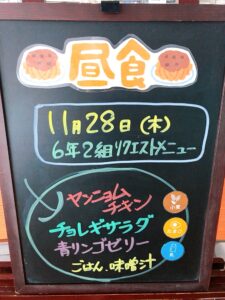 昼食
11月28日(木)
6年2組リクエストメニュー
ヤンニョム
チキン
チョレギサラダ
青リンゴゼリー
ごはん、味噌汁
小麦
乳